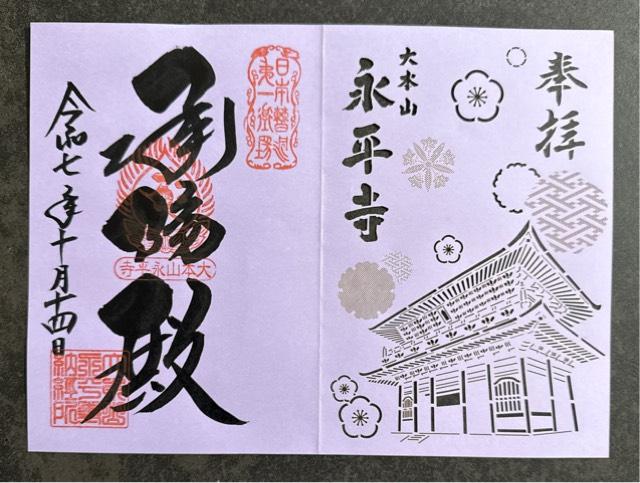 奉拝
大本山
永平寺
日本曹洞
第一道場
承陽殿
大本山永平寺
令和七年十月十四日
大本山
永平寺
納経所